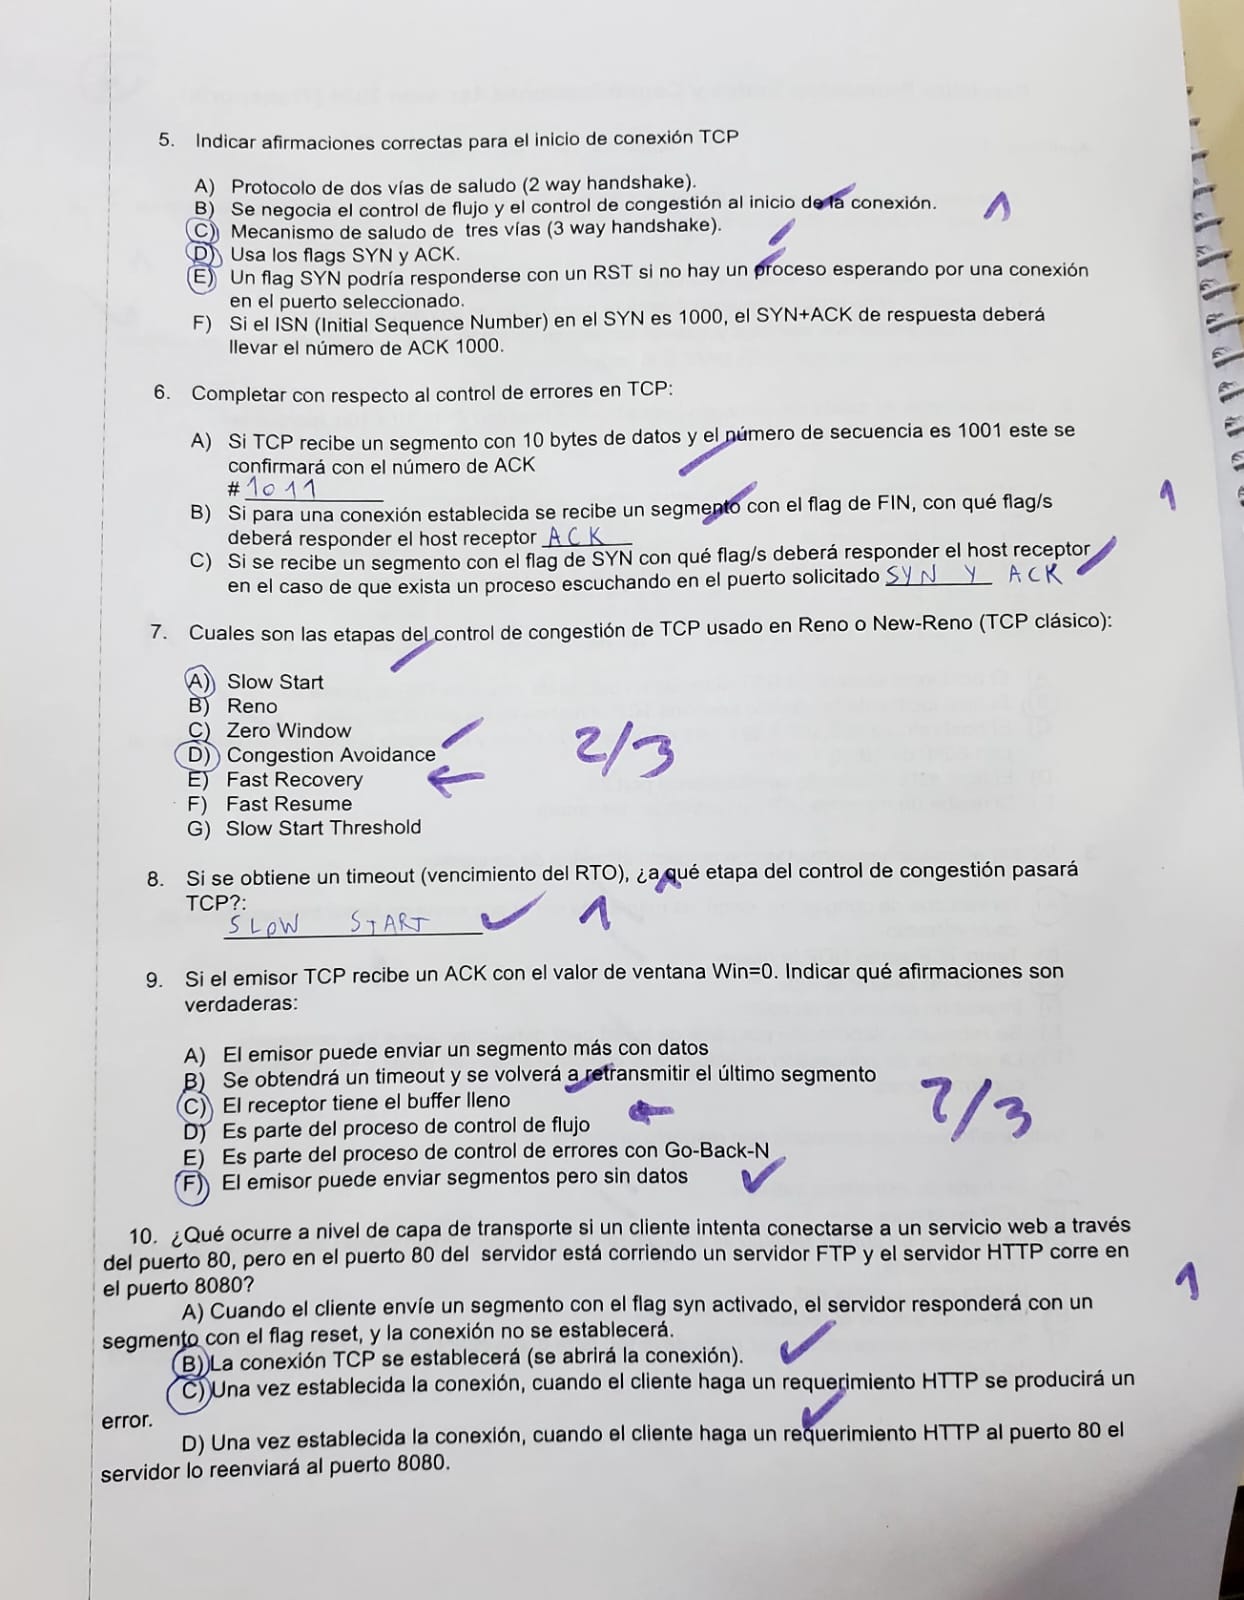 5. Indicar afirmaciones correctas para el inicio de conexión TCP
A) Protocolo de dos vías de saludo (2 way handshake).
B) Se negocia el control de flujo y el control de congestión al inicio de la conexión.
1
C) Mecanismo de saludo de tres vías (3 way handshake).
D) Usa los flags SYN y ACK.
E) Un flag SYN podría responderse con un RST si no hay un proceso esperando por una conexión
en el puerto seleccionado.
F) Si el ISN (Initial Sequence Number) en el SYN es 1000, el SYN+ACK de respuesta deberá
llevar el número de ACK 1000.
6. Completar con respecto al control de errores en TCP:
A) Si TCP recibe un segmento con 10 bytes de datos y el número de secuencia es 1001 este se
confirmará con el número de ACK
# 1011
1
B) Si para una conexión establecida se recibe un segmento con el flag de FIN, con qué flag/s
deberá responder el host receptor ACK
C) Si se recibe un segmento con el flag de SYN con qué flag/s deberá responder el host receptor
en el caso de que exista un proceso escuchando en el puerto solicitado SYN Y ACK
7. Cuales son las etapas del control de congestión de TCP usado en Reno o New-Reno (TCP clásico):
A) Slow Start
B) Reno
C) Zero Window
2/3
D) Congestion Avoidance
E) Fast Recovery
F) Fast Resume
G) Slow Start Threshold
8. Si se obtiene un timeout (vencimiento del RTO), ¿a qué etapa del control de congestión pasará
TCP?:
SLOW START
1
9. Si el emisor TCP recibe un ACK con el valor de ventana Win=0. Indicar qué afirmaciones son
verdaderas:
A) El emisor puede enviar un segmento más con datos
B) Se obtendrá un timeout y se volverá a retransmitir el último segmento
C) El receptor tiene el buffer lleno
2/3
D) Es parte del proceso de control de flujo
E) Es parte del proceso de control de errores con Go-Back-N
F) El emisor puede enviar segmentos pero sin datos
10. ¿Qué ocurre a nivel de capa de transporte si un cliente intenta conectarse a un servicio web a través
del puerto 80, pero en el puerto 80 del servidor está corriendo un servidor FTP y el servidor HTTP corre en
el puerto 8080?
1
A) Cuando el cliente envíe un segmento con el flag syn activado, el servidor responderá con un
segmento con el flag reset, y la conexión no se establecerá.
B) La conexión TCP se establecerá (se abrirá la conexión).
C) Una vez establecida la conexión, cuando el cliente haga un requerimiento HTTP se producirá un
error.
D) Una vez establecida la conexión, cuando el cliente haga un requerimiento HTTP al puerto 80 el
servidor lo reenviará al puerto 8080.